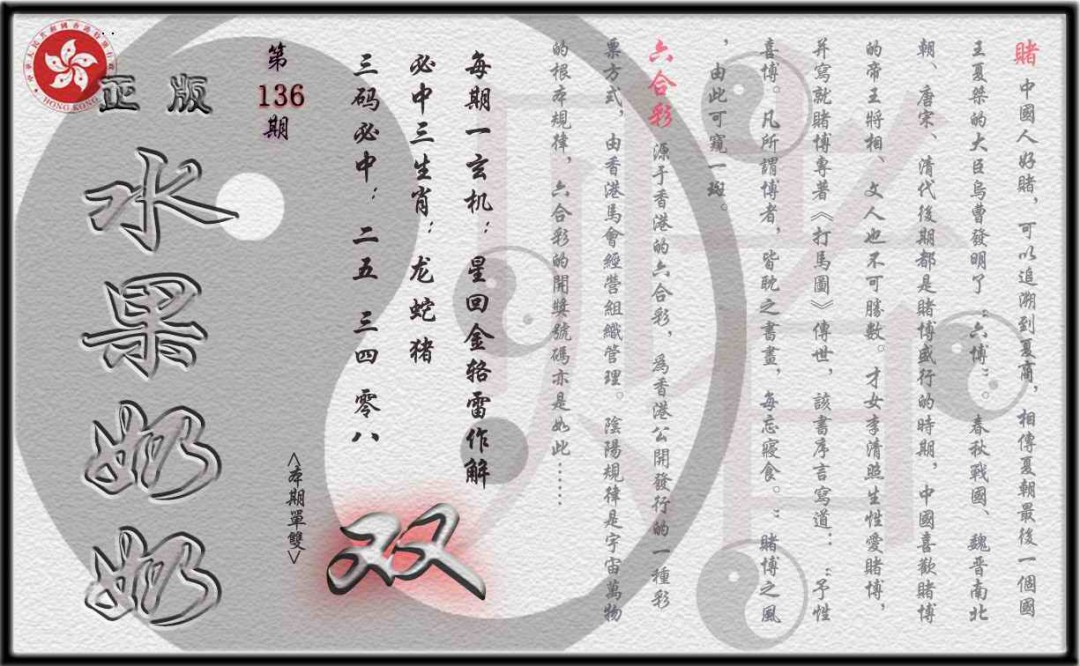 賭 中國人好賭，可以追溯到夏商，相傳夏朝最後一個國
王夏桀的大臣烏曹發明了“六博”。春秋戰國、魏晉南北
朝、唐宋、清代後期都是賭博盛行的時期，中國喜歡賭博
的帝王將相、文人也不可勝數。才女李清照生性愛賭博，
并寫就賭博專著《打馬圖》傳世，該書序言寫道：“予性
喜博。凡所謂博者，皆耽之書畫，每忘寢食。”賭博之風
，由此可窺一斑。
六合彩 源于香港的六合彩，為香港公開發行的一種彩
票方式，由香港馬會經營組織管理。陰陽規律是宇宙萬物
的根本規律，六合彩的開獎號碼亦是如此……
每期一玄机：星回金辂雷作解
必中三生肖：龙蛇猪
三码必中：二五 三四 零八
双
<本期單雙>
第
136
期
正版
水果奶奶
HONG KONG